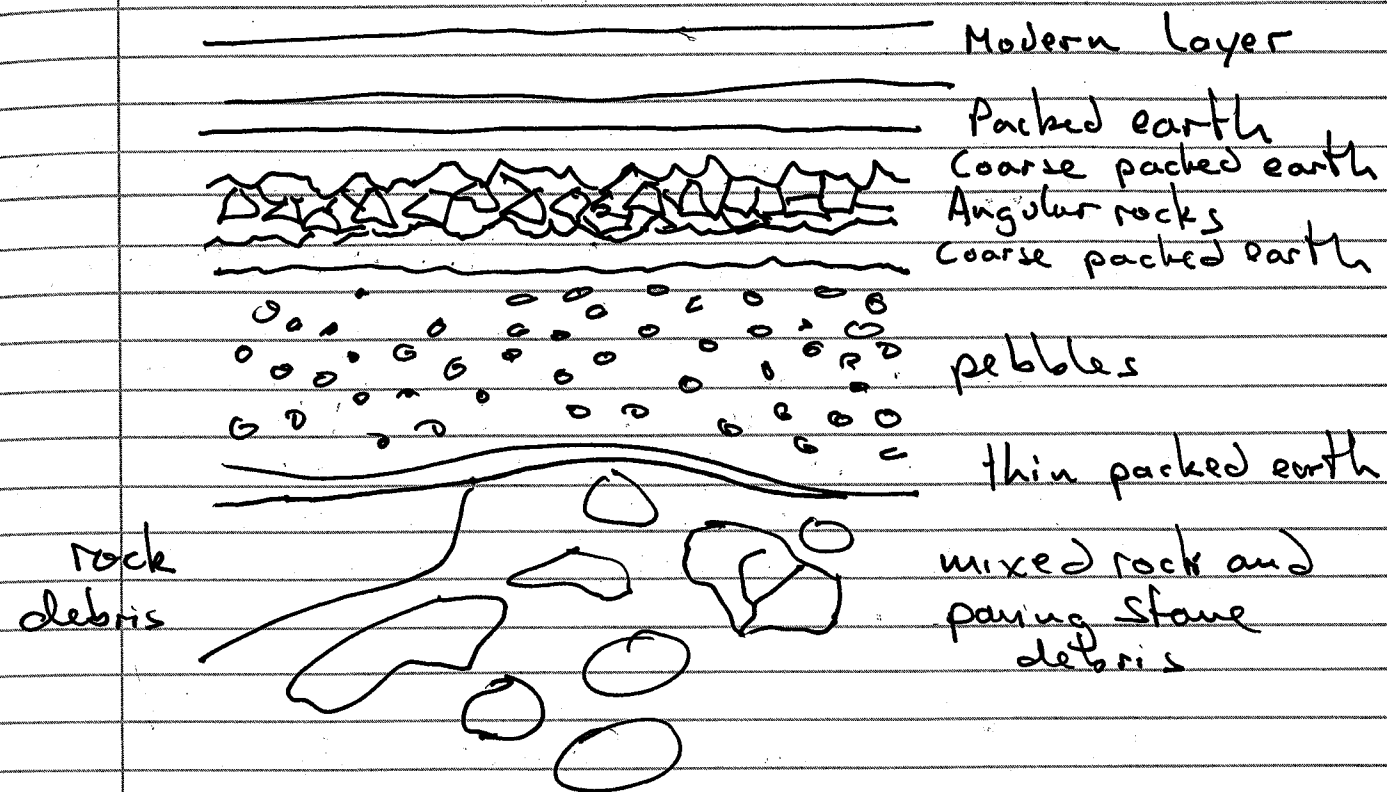 Modern Layer
Packed earth
Coarse packed earth
Angular rocks
Coarse packed earth
pebbles
thin packed earth
rock
debris
mixed rock and
paving stone
debris